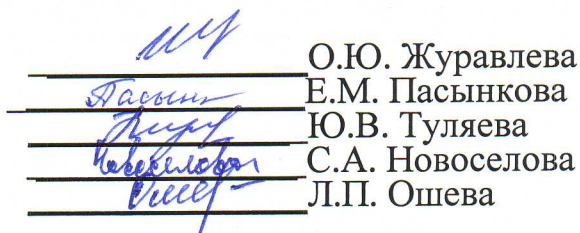 О.Ю. Журавлева
Пасынк Е.М. Пасынкова
Ю.В. Туляева
Новоселова С.А. Новоселова
Л.П. Ошева